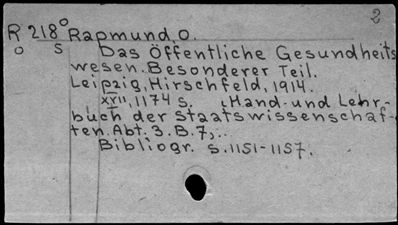 2
R 218° Rapmund, O.
o S Das Öffentliche Gesundheits
wesen. Besonderer Teil.
Leipzig, Hirschfeld, 1914.
XVII, 1174 s. „Hand- und Lehr-
buch der Staatswissenschaf-
ten. Abt. 3. B. 7„..
Bibliogr. s. 1151-1157.